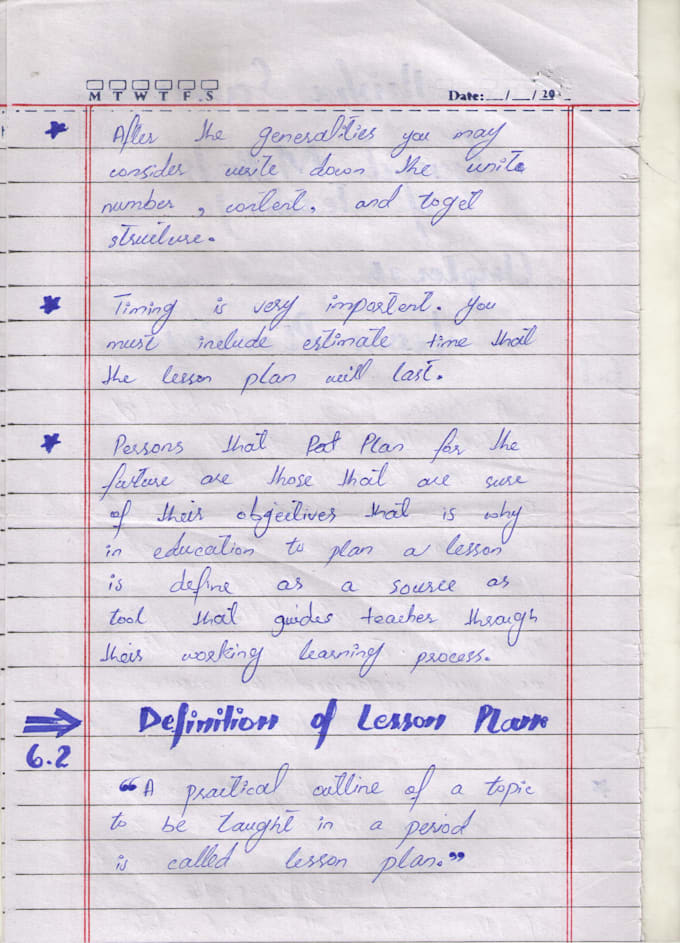 M T W T F S
Date:__/__/20__
After the generalities you may
consider write down the unite
number, content, and toget
structure.
Timing is very important. you
must include estimate time that
the lesson plan will last.
Persons that Pat Plan for the
farture are those that are sure
of their objectives that is why
in education to plan a lesson
is define as a source as
tool that guides teacher through
their working learning process.
Definition of Lesson Plan
6.2
"A practical outline of a topic
to be taught in a period
is called lesson plan."